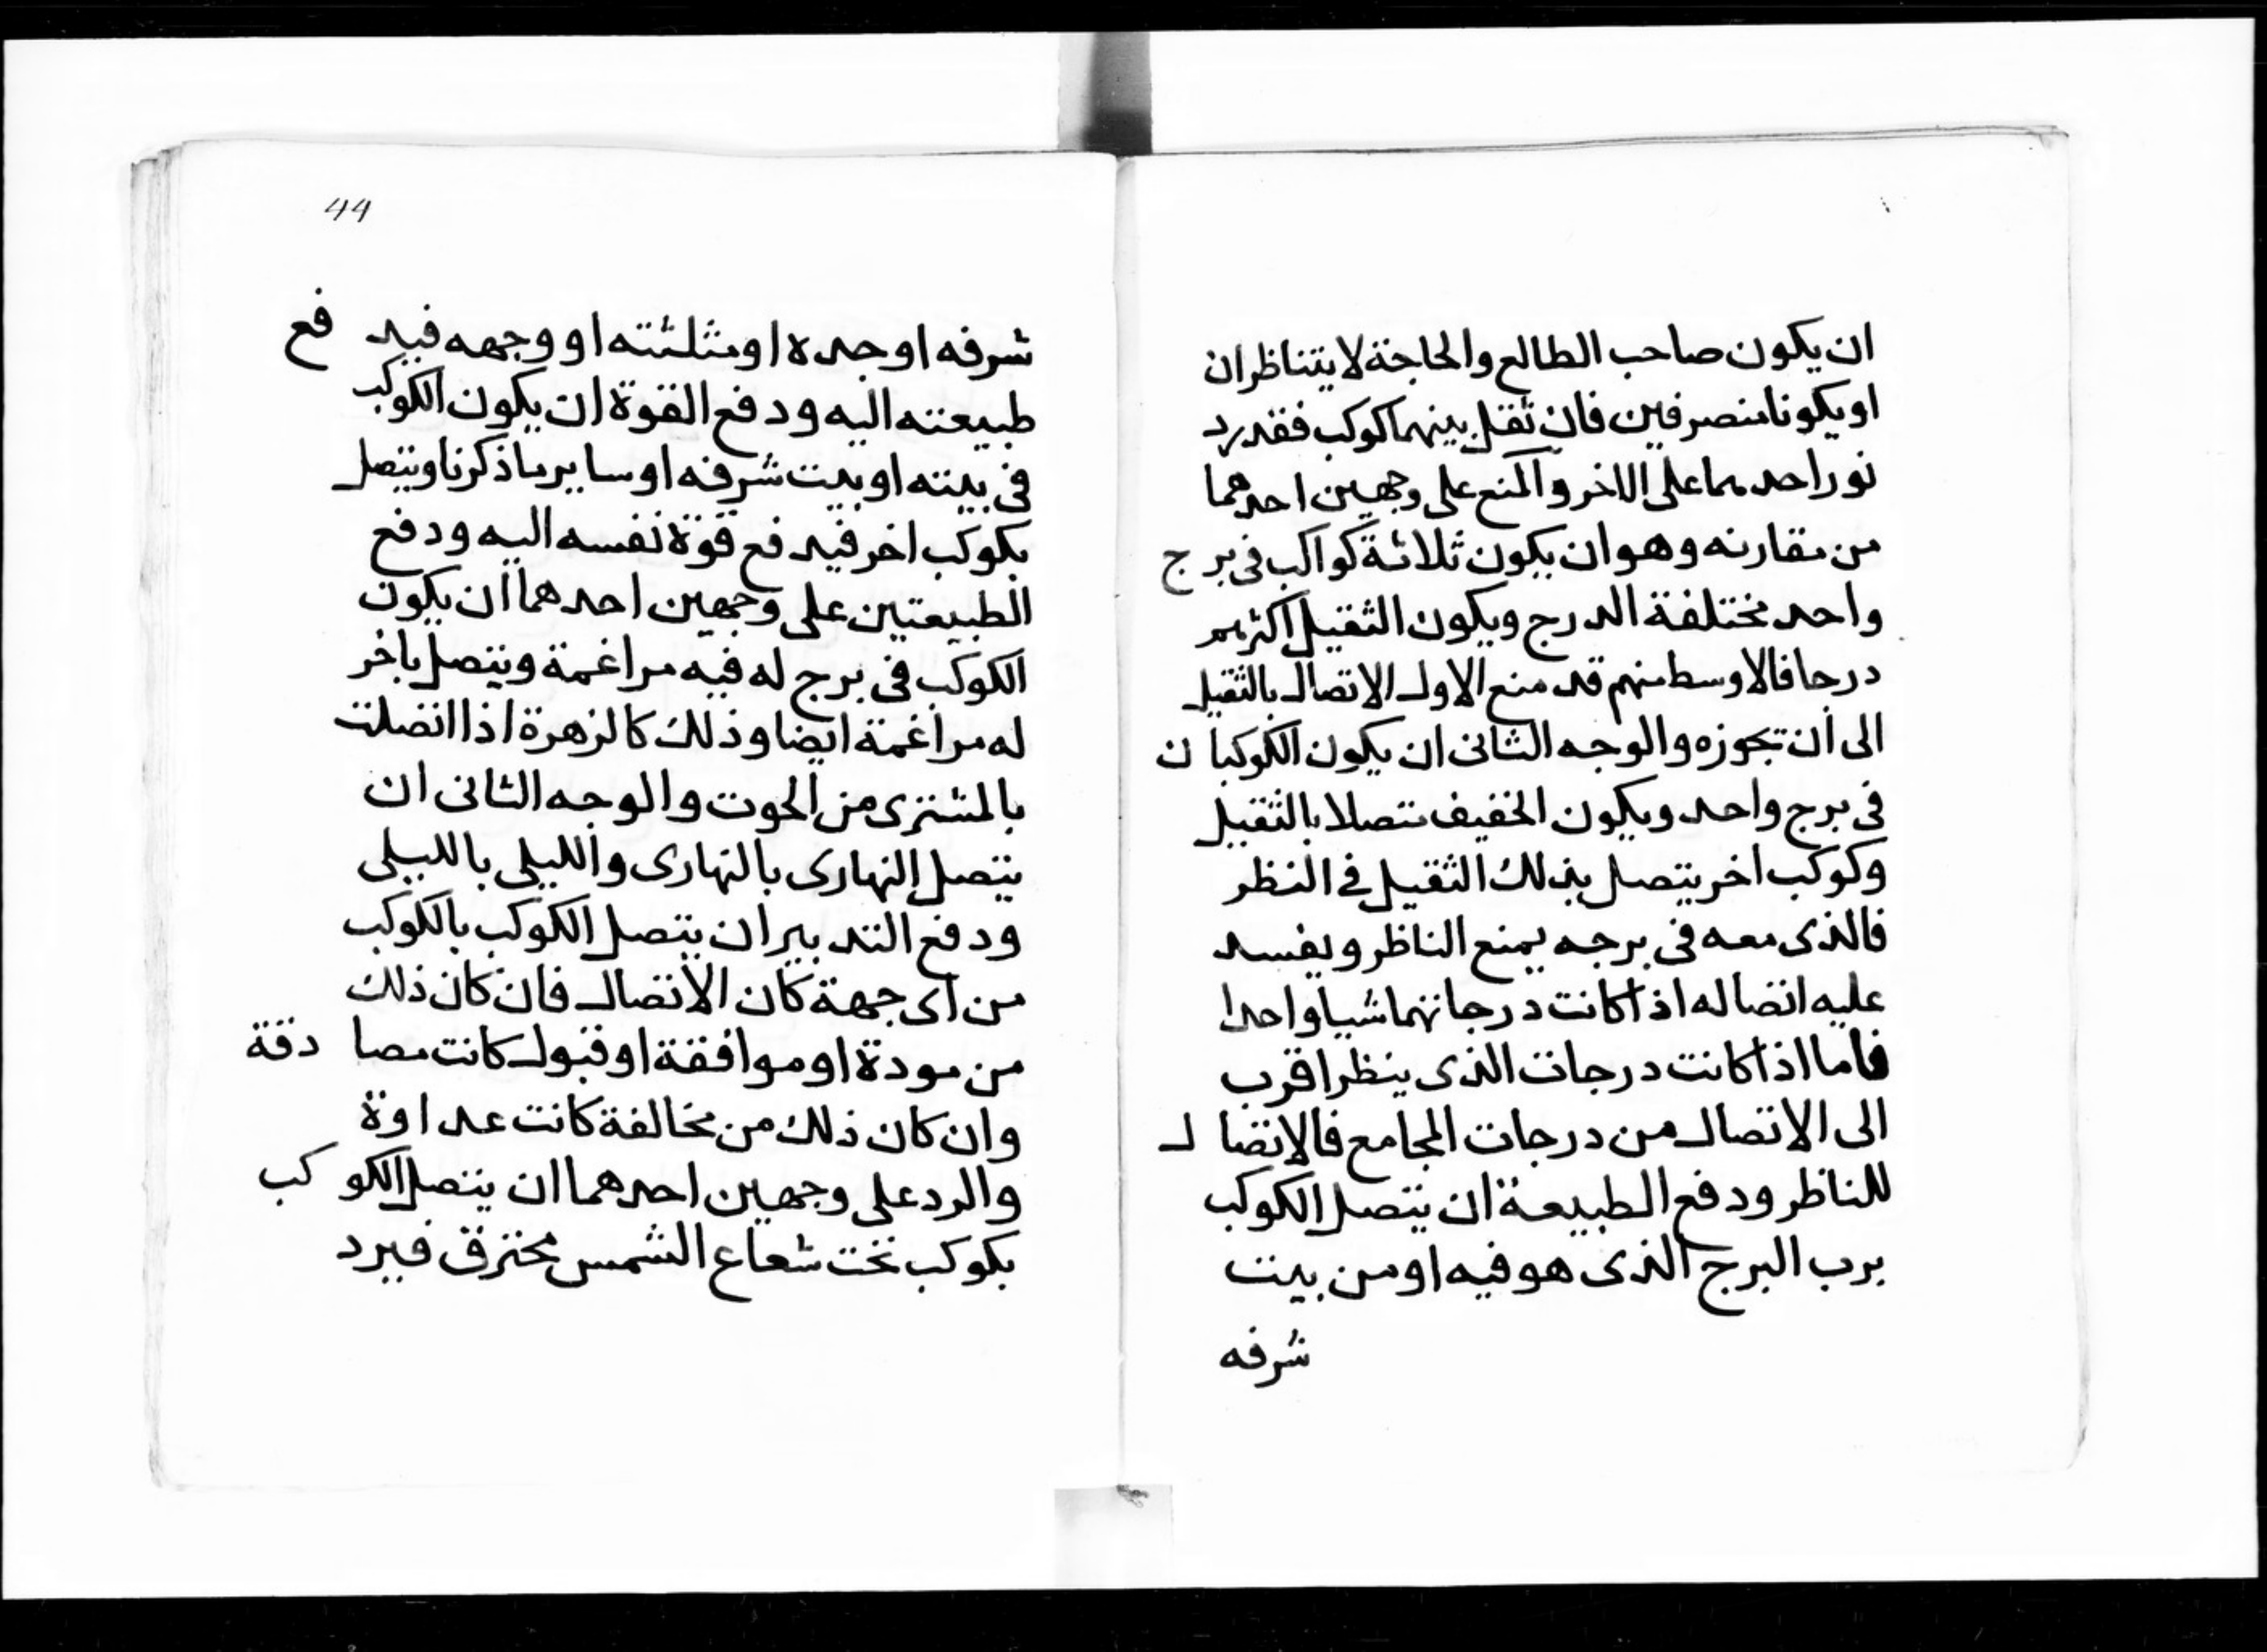 ان يكون صاحب الطالع والحاجة لا يتناظران
او يكونا منصرفين فان نقل بينهما كوكب فقد رد
نور احدهما على الاخر والمنع على وجهين احدهما
من مقارنه وهو ان يكون ثلاثة كواكب فى برج
واحد مختلفة الدرج ويكون الثقيل اكثرهم
درجا فالاوسط منهم قد منع الاول الاتصال بالثقيل
الى ان تجوزه والوجه الثانى ان يكون الكوكبان
فى برج واحد ويكون الخفيف متصلا بالثقيل
وكوكب اخر يتصل بذلك الثقيل فى النظر
فالذى معه فى برجه يمنع الناظر ويفسد
عليه اتصاله اذا كانت درجاتهما شيا واحدا
فاما اذا كانت درجات الذى ينظر اقرب
الى الاتصال من درجات المجامع فالاتصال
للناظر ودفع الطبيعة ان يتصل الكوكب
برب البرج الذى هو فيه او من بيت
شرفه
44
شرفه او حده او مثلثته او وجهه فيدفع
طبيعته اليه ودفع القوة ان يكون الكوكب
فى بيته او بيت شرفه او ساير ما ذكرنا ويتصل
بكوكب اخر فيدفع قوة نفسه اليه ودفع
الطبيعتين على وجهين احدهما ان يكون
الكوكب فى برج له فيه مراغمة ويتصل باخر
له مراغمة ايضا وذلك كالزهرة اذا اتصلت
بالمشترى من الحوت والوجه الثانى ان
يتصل النهارى بالنهارى والليلى بالليلى
ودفع التدبير ان يتصل الكوكب بالكوكب
من اى جهة كان الاتصال فان كان ذلك
من مودة او موافقة او قبول كانت مصادقة
وان كان ذلك من مخالفة كانت عداوة
والرد على وجهين احدهما ان يتصل الكوكب
بكوكب تحت شعاع الشمس محترق فيرد